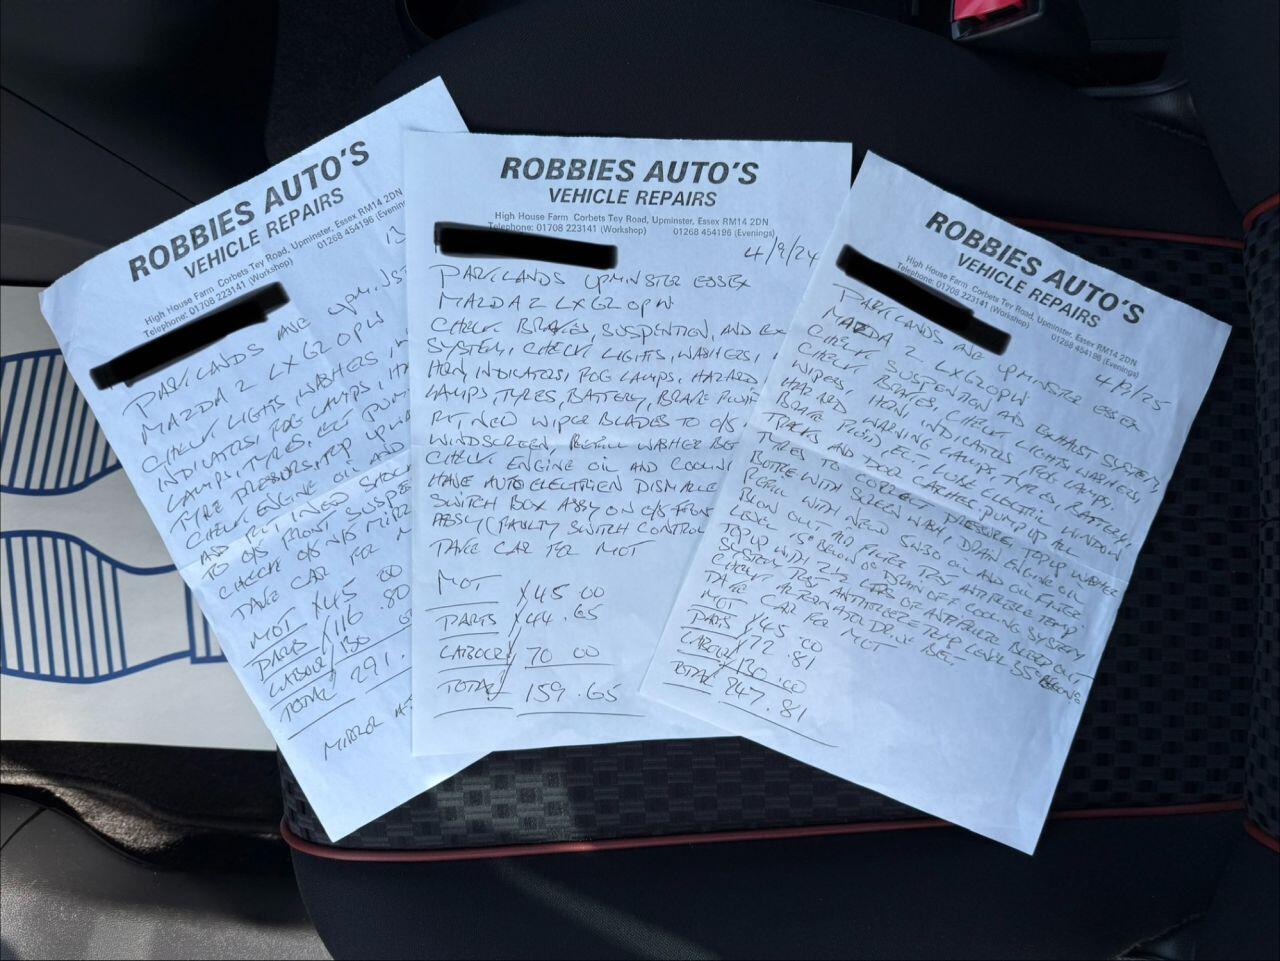 ROBBIES AUTO'S
VEHICLE REPAIRS
High House Farm Corbets Tey Road, Upminster, Essex RM14 2DN
Telephone: 01708 223141 (Workshop) 01268 454196 (Evenin
13
PARKLANDS AVE UPMINST
MAZDA 2 LX62 OPW
CHECK LIGHTS WASHERS
INDICATORS, FOG LAMPS, HA
LAMPS, TYRES, ECT PUM
TYRE PRESSURS, TOP UP WA
CHECK ENGINE OIL AND
AND PUT NEED SHOCK
TO O/S FRONT SUSPE
CHECK O/S N/S MIRR
TAKE CAR FOR M
MOT £45 00
PARTS £116 .80
LABOUR £130
TOTAL 291.
MIRROR
ROBBIES AUTO'S
VEHICLE REPAIRS
High House Farm Corbets Tey Road, Upminster, Essex RM14 2DN
Telephone: 01708 223141 (Workshop) 01268 454196 (Evenings)
4/9/24
PARKLANDS UPMINSTER ESSEX
MAZDA 2 LX62 OPW
CHECK BRAKES, SUSPENTION, AND EX
SYSTEM, CHECK LIGHTS, WASHERS,
HRN, INDICATORS, FOG LAMPS, HAZARD
LAMPS, TYRES, BATTERY, BRAKE FLUID
PUT NEED WIPER BLADES TO O/S
WINDSCREEN, REFILL WASHER BOT
CHECK ENGINE OIL AND COOLIN
HAVE AUTO ELECTRIEN DISMALLE
SWITCH BOX ASSY ON O/S FRON
ASSY (FAULTY SWITCH CONTROL
TAKE CAR FOR MOT
MOT £45 00
PARTS £44.65
LABOUR £70 00
TOTAL £159.65
ROBBIES AUTO'S
VEHICLE REPAIRS
High House Farm Corbets Tey Road, Upminster, Essex RM14 2DN
Telephone: 01708 223141 (Workshop) 01268 454196 (Evenings)
4/9/25
PARKLANDS AVE UPMINSTER ESSEX
MAZDA 2 LX62 OPW
CHECK BRAKES, SUSPENTION AND EXHAUST SYSTEM,
CHECK LIGHTS, WASHERS,
WIPERS, HRN, INDICATORS, FOG LAMPS,
HAZARD WARNING LAMPS, TYRES, BATTERY,
BRAKE FLUID, ECT, LUBE ELECTRIC WINDOW
TRACKS AND DOOR CATCHES, PUMP UP ALL
TYRES TO CORRECT PRESSURE TOP UP WASHER
BOTTLE WITH SCREEN WASH, DRAIN ENGINE OIL
REFILL WITH NEED 5W30 OIL AND OIL FILTER
BLOW OUT AIR FILTER TEST ANTIFREEZE TEMP
LEVEL 15° BELOW 0° DRAIN OFF COOLING SYSTEM
TOP UP WITH 2½ LTRS OF ANTIFREEZE BLEED OUT
SYSTEM TEST ANTIFREEZE TEMP LEVEL 35°
CHECK ALTERNATOR DRIVE BELT
TAKE CAR FOR MOT
MOT £45.00
PARTS £72.81
LABOUR £130.00
TOTAL £247.81